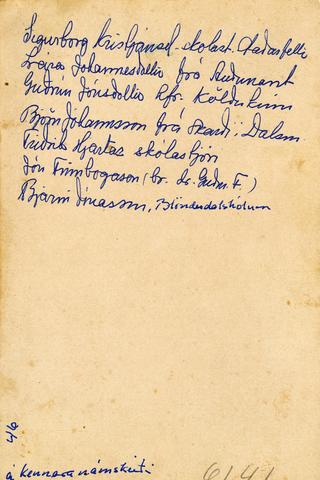 Sigurborg Kristjánsd. skólast. Staðarfelli
Lára Jóhannesdóttir frá
Guðrún Jónsdóttir kfr. Köldukinn
Björn Jóhannsson frá Skarði, Dalam.
Friðrik Hjartar skólastjóri
Jón Finnbogason (br. dr. Guðm. F.)
Bjarni Jónasson, Blöndudalshólum
46
á kennaranámskeiði
6141